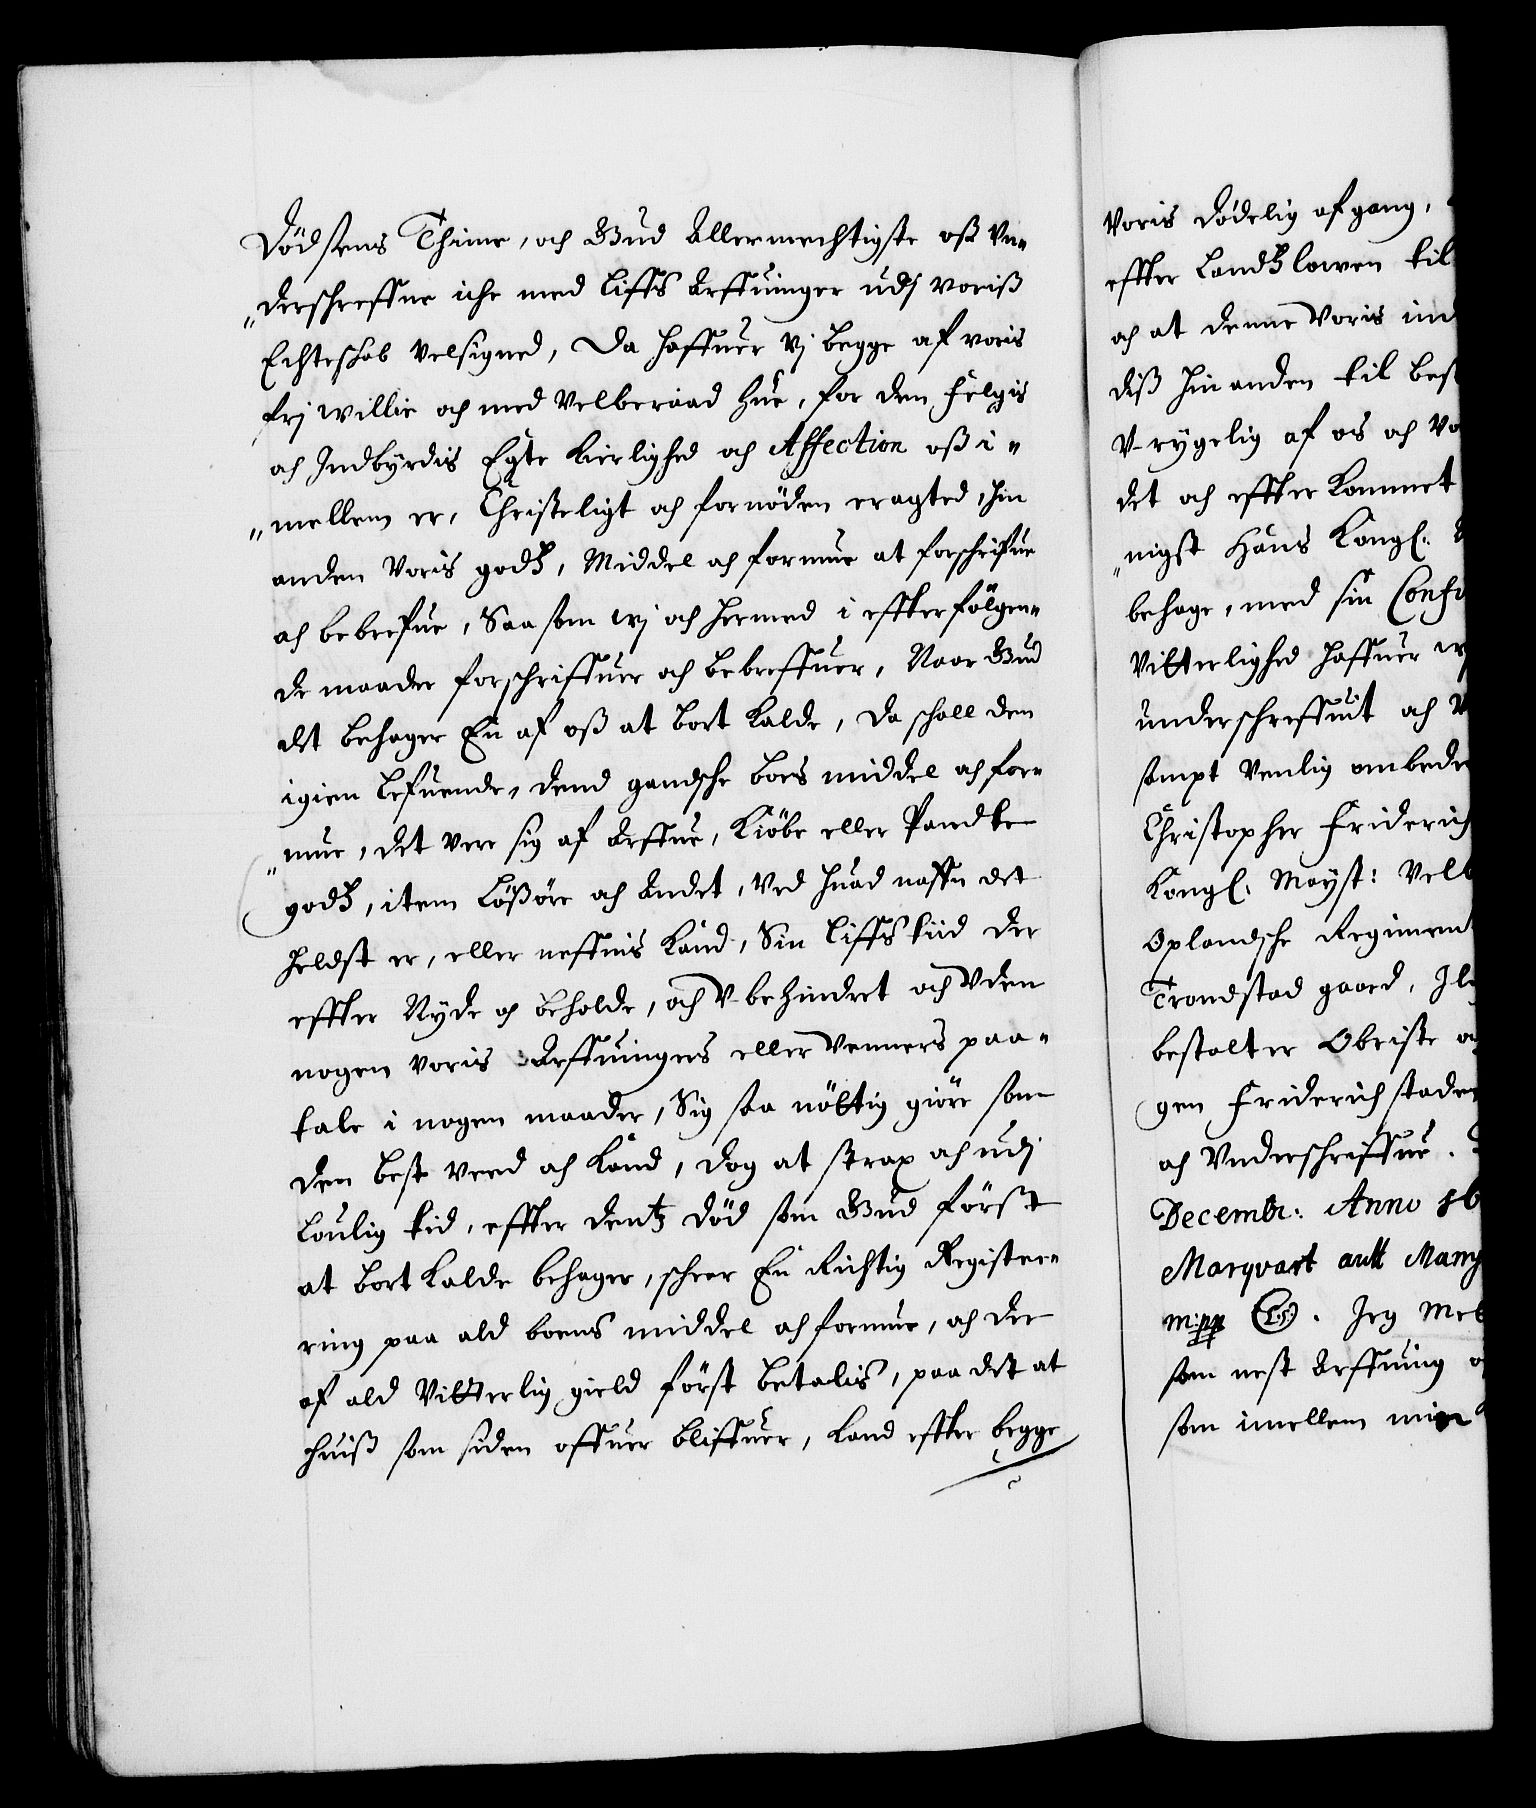 Dödsens Thime, och Gud Allermechtigste oß Un„
„derschrefne iche med Liffs Arffuinger udj voriß
Echteschab velsigned, Da haffuer vj begge af voris
frj willie och med velberaad hue, for den felgis
och Indbyrdis Egte kierlighed och Affection oß i„
„mellem er, Christeligt och fornöden eragted, hin
anden voris godtz, Middel och formue at forschrifue
och bebrefue, Saa som wj och hermed i effterfölgen„
de maader forschriffuer och bebreffuer, Naar Gud
det behager En af oß at bort kalde, da schall den
igien lefuende, dend gandsche boes middel och for„
„mue, det vere sig af Arffue, kiöbe eller Pandte
godtz, item Lößöre och Andet, ved huad naffn det
heldst er, eller neffnis kand, Sin Liffs tiid der
effter Nyde och beholde, och V-behindret och Vden
nogen voris Arffuingers eller Venners paa„
tale i nogen maader, Sig saa nöttig giöre som
den best veed och kand, dog at strax och udj
Loulig tid, effter dentz död som Gud förßt
at bort kalde behager, scheer En Richtig Registee„
ring paa ald boens middel och formue, och der
af ald Vitterlig gield först betalis, paa det at
huiß som siden offuer bliffuer, kand effter begge
voris dödelig afgang,
effter Landtzlowen til
och at denne voris ind
diß hin anden til best
V-rygelig af os och vo
det och effterkommet
„nigst Hans Kongl.
behage, med sin Confi
Vitterlighed haffuer w
underschreffuit och
sampt venlig ombede
Christopher Friderich
Kongl. Mayst: Velb
Oplandsche Regiment
Trondstad gaard, Il
bestalter Obriste o
gen Friderichstaden
och Underschriffue.
Decembr: Anno 16
Marqvart
mpp (LS). Jeg Met
som nest Arffuing o
som imellem min